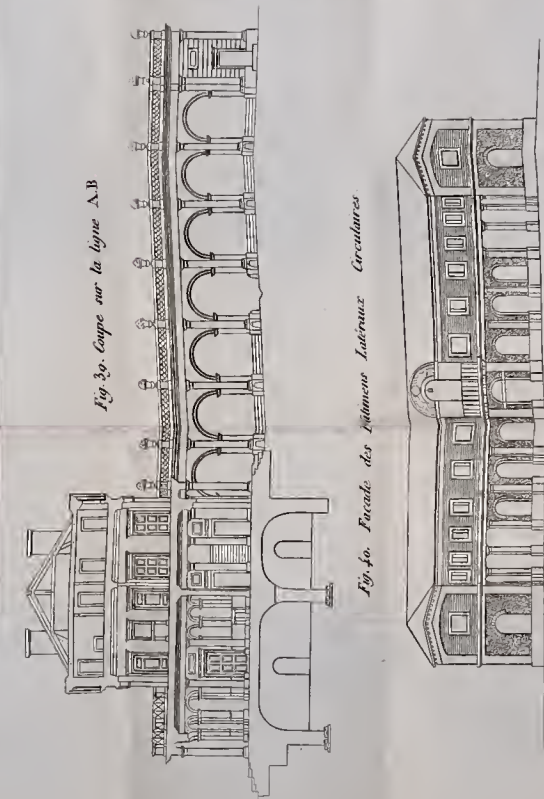 Fig. 39. Coupe sur la ligne A.B
Fig. 40. Façade des Bâtimens Latéraux Circulaires.